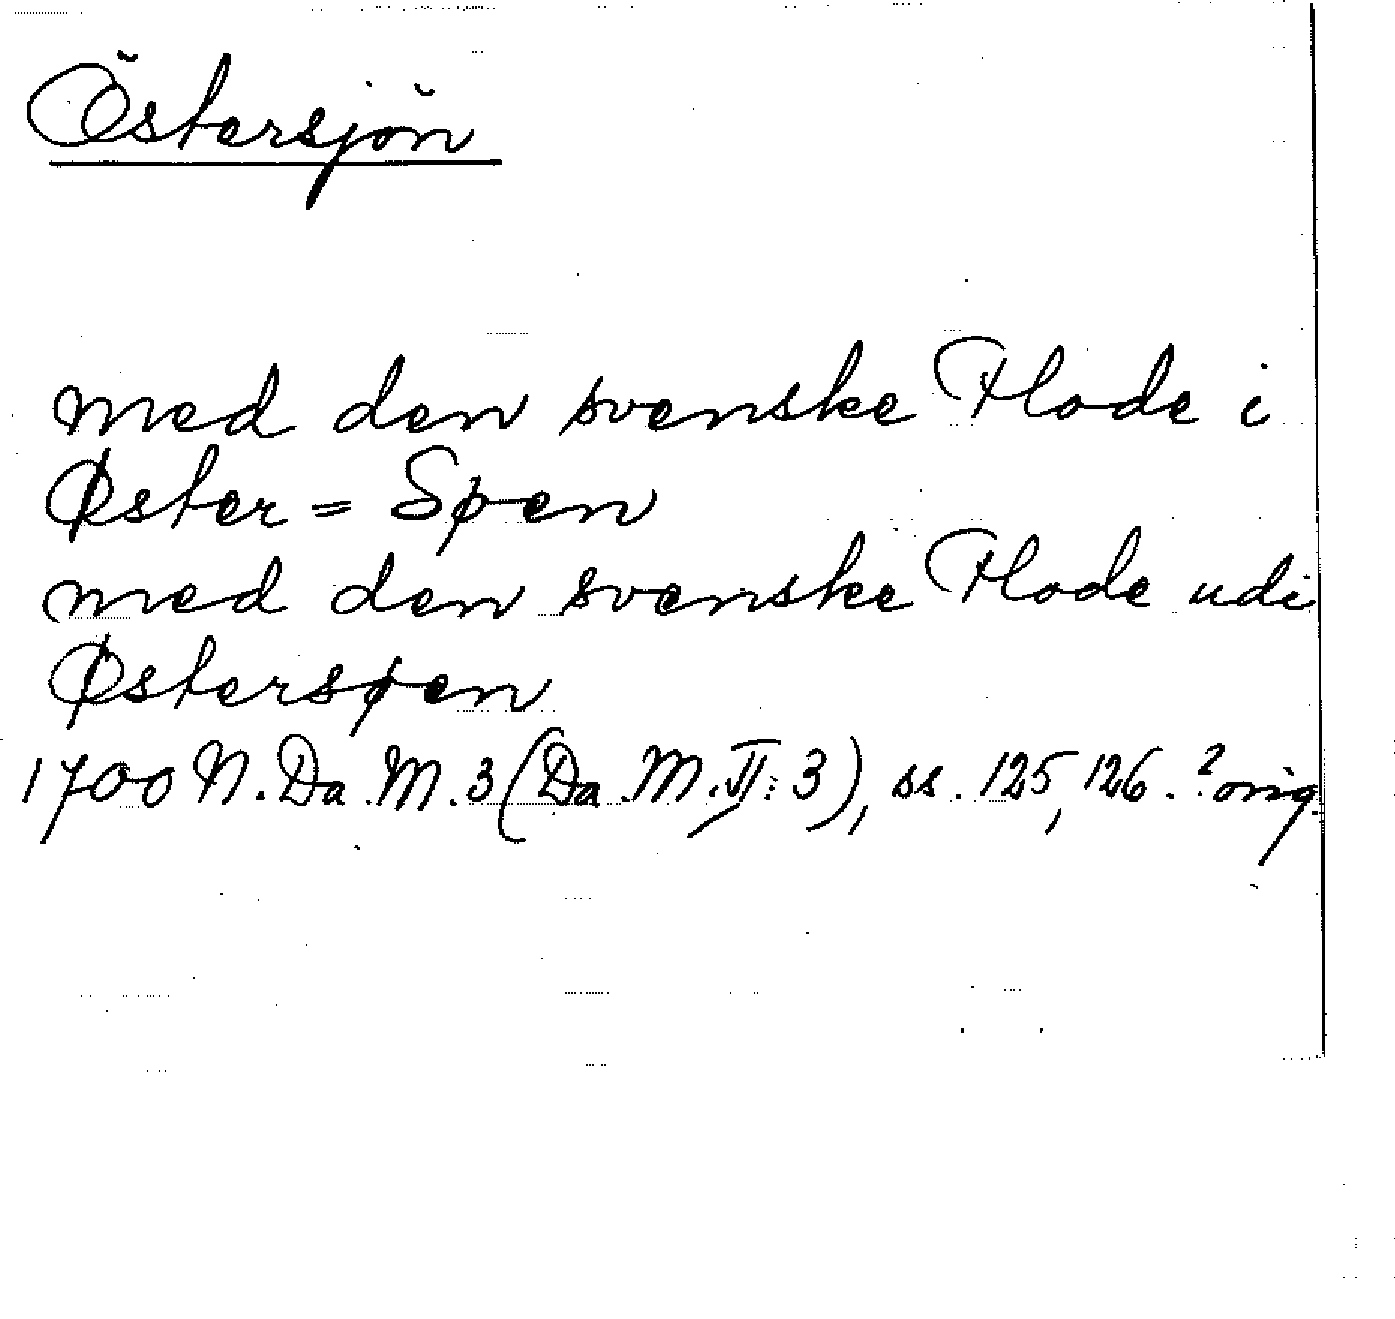 Östersjön
med den svenske Flode i
Øster = Søen
med den svenske Flode udi
Østersøen
1700 N. Da. M. 3 (Da. M. VI: 3), ss. 125, 126. ? orig.